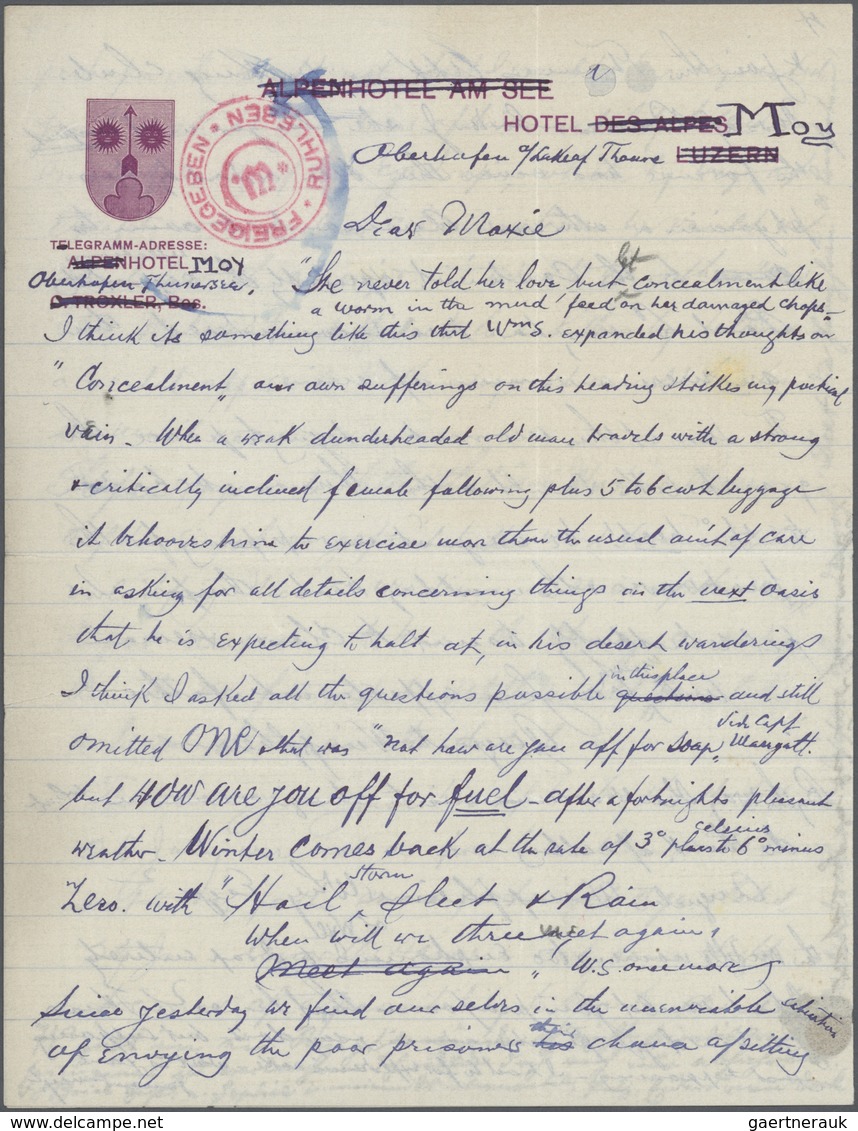 ALPENHOTEL AM SEE
HOTEL DES ALPES Moy
Oberhofen o/Lake of Thoune LUZERN
RUHLEBEN * FREIGEGEBEN *
TELEGRAMM-ADRESSE:
ALPENHOTEL MOY
Oberhofen Thunersee.
C. TROXLER, Bes.
Dear Moxie
"She never told her love but let concealment like
a worm in the mud feed on her damaged chops"
I think its something like this that Wms. expanded his thoughts on
"Concealment" our own sufferings on this heading strikes my poetical
vain. When a weak dunderheaded old man travels with a strong
& critically inclined female following plus 5 to 6 cwt luggage
it behooves him to exercise more than the usual am't of care
in asking for all details concerning things in the next oasis
that he is expecting to halt at, in his desert wanderings
I think I asked all the questions possible in this place questions and still
omitted ONE that was "not how are you off for soap" vide Capt Marryatt.
but HOW are you off for fuel - after a fortnights pleasant
weather. Winter comes back at the rate of 3° plus to 6° celsius minus
Zero. with "Hail, storm Sleet & Rain
When will we three meet again,
Meet again " W.S. once more
Since yesterday we find our selves in the unenviable situation
of envying the poor prisoners their his chance of sitting
gaertnerauk